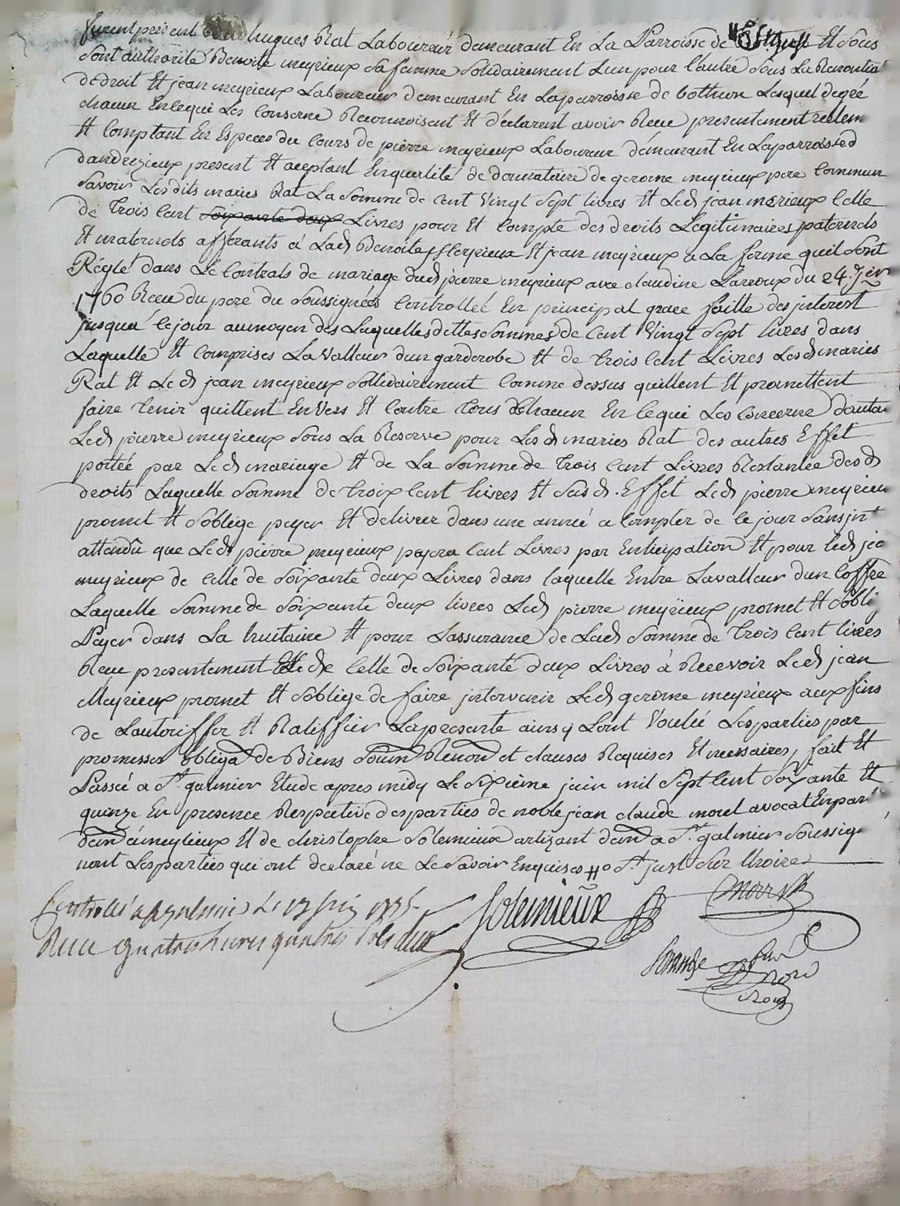 furent present hugues Rat Laboureur demeurant En La Parroisse de Et Sous
Sont authorité Benoite meyrieux Sa femme Solidairement Lun pour Lautre Sous La Renontia
de droit Et jean meyrieux Laboureur demeurant En Laparroisse de botheon Lesquel degré
chacun En lequi Les Conserne Reconnoissent Et déclarent avoir Receu presentement réelem
Et Comptant En Especes du Cours de pierre meyrieux Laboureur demeurant En Laparroisse d
dandrezieux present Et aceptant En qualité de donnataire de gerome meyrieux pere Commun
Savoir Les dits mariés Rat La Somme de Cent Vingt Sept livres Et Led jean meyrieux Celle
de Trois Cent Soixante deux Livres pour Et Compte des droits Légitimaires paternels
Et maternels afférants à Lad Benoite Meyrieux Et jean meyrieux a La forme quil Sont
Réglé dans Le Contrats de mariage dud pierre meyrieux avec claudine Larroux du 24
1760 Receu du pere du Soussignés Controllée En principal grace faitte des jnterest
jusqua le jour aumoyen des Laquelles dittes Sommes de Cent Vingt Sept livres dans
Laquelle Et Comprises La Valleur dun garderobe Et de Trois Cent Livres Lesd mariés
Rat Et Led jean meyrieux Sollidairement Comme dessus quittent Et promettent
faire Tenir quittent Envers Et Contre Tous Chacun En lequi Les Concerne dauta
Led pierre meyrieux Sous La Reserve pour Lesd mariés Rat des autres Effet
portée par Led mariage Et de La Somme de Trois Cent Livres Restantée desd
droits Laquelle Somme de Troix Cent livres Et Susd Effet Led pierre meyrieu
promet Et Soblège payer Et delivrer dans une année a Compter de Ce jour Sans jnt
attendû que Led pierre meyrieux payera Cent Livres par Enticipation Et pour Led jea
meyrieux de Celle de Soixante deux Livres dans Laquelle Entre La valleur dun Coffre
Laquelle Somme de Soixante deux livres Led pierre meyrieux promet Et Sobli
Payer dans La huitaine Et pour Lassurance de Lad Somme de Trois Cent livres
Receu presentement Et de Celle de Soixante deux Livres à Recevoir Led jean
Meyrieux promet Et Soblège de faire jntervenir Led gerome meyrieux aux fins
de Lautoriffer Et Ratiffier Lapresente ainsy Lont Voulu Les parties par
promesses obliga de Biens Soum Renon et clauses Requises Et nessaires, fait Et
Passé a St. galmier Etude apres midy Le Sixième juin mil Sept Cent Soixante Et
quinze En presence Respective des parties de noble jean claude morel avocat En par
dem à meylieux Et de christophe Solemieux artizant dem a St. galmier Soussig
nont Les parties qui ont déclaré ne Le Savoir Enquises St. just Sur Loire
Controllé a St galmier Le 13 juin 1775
Receu quatre livres quatre Sols
Solemieux
Morel